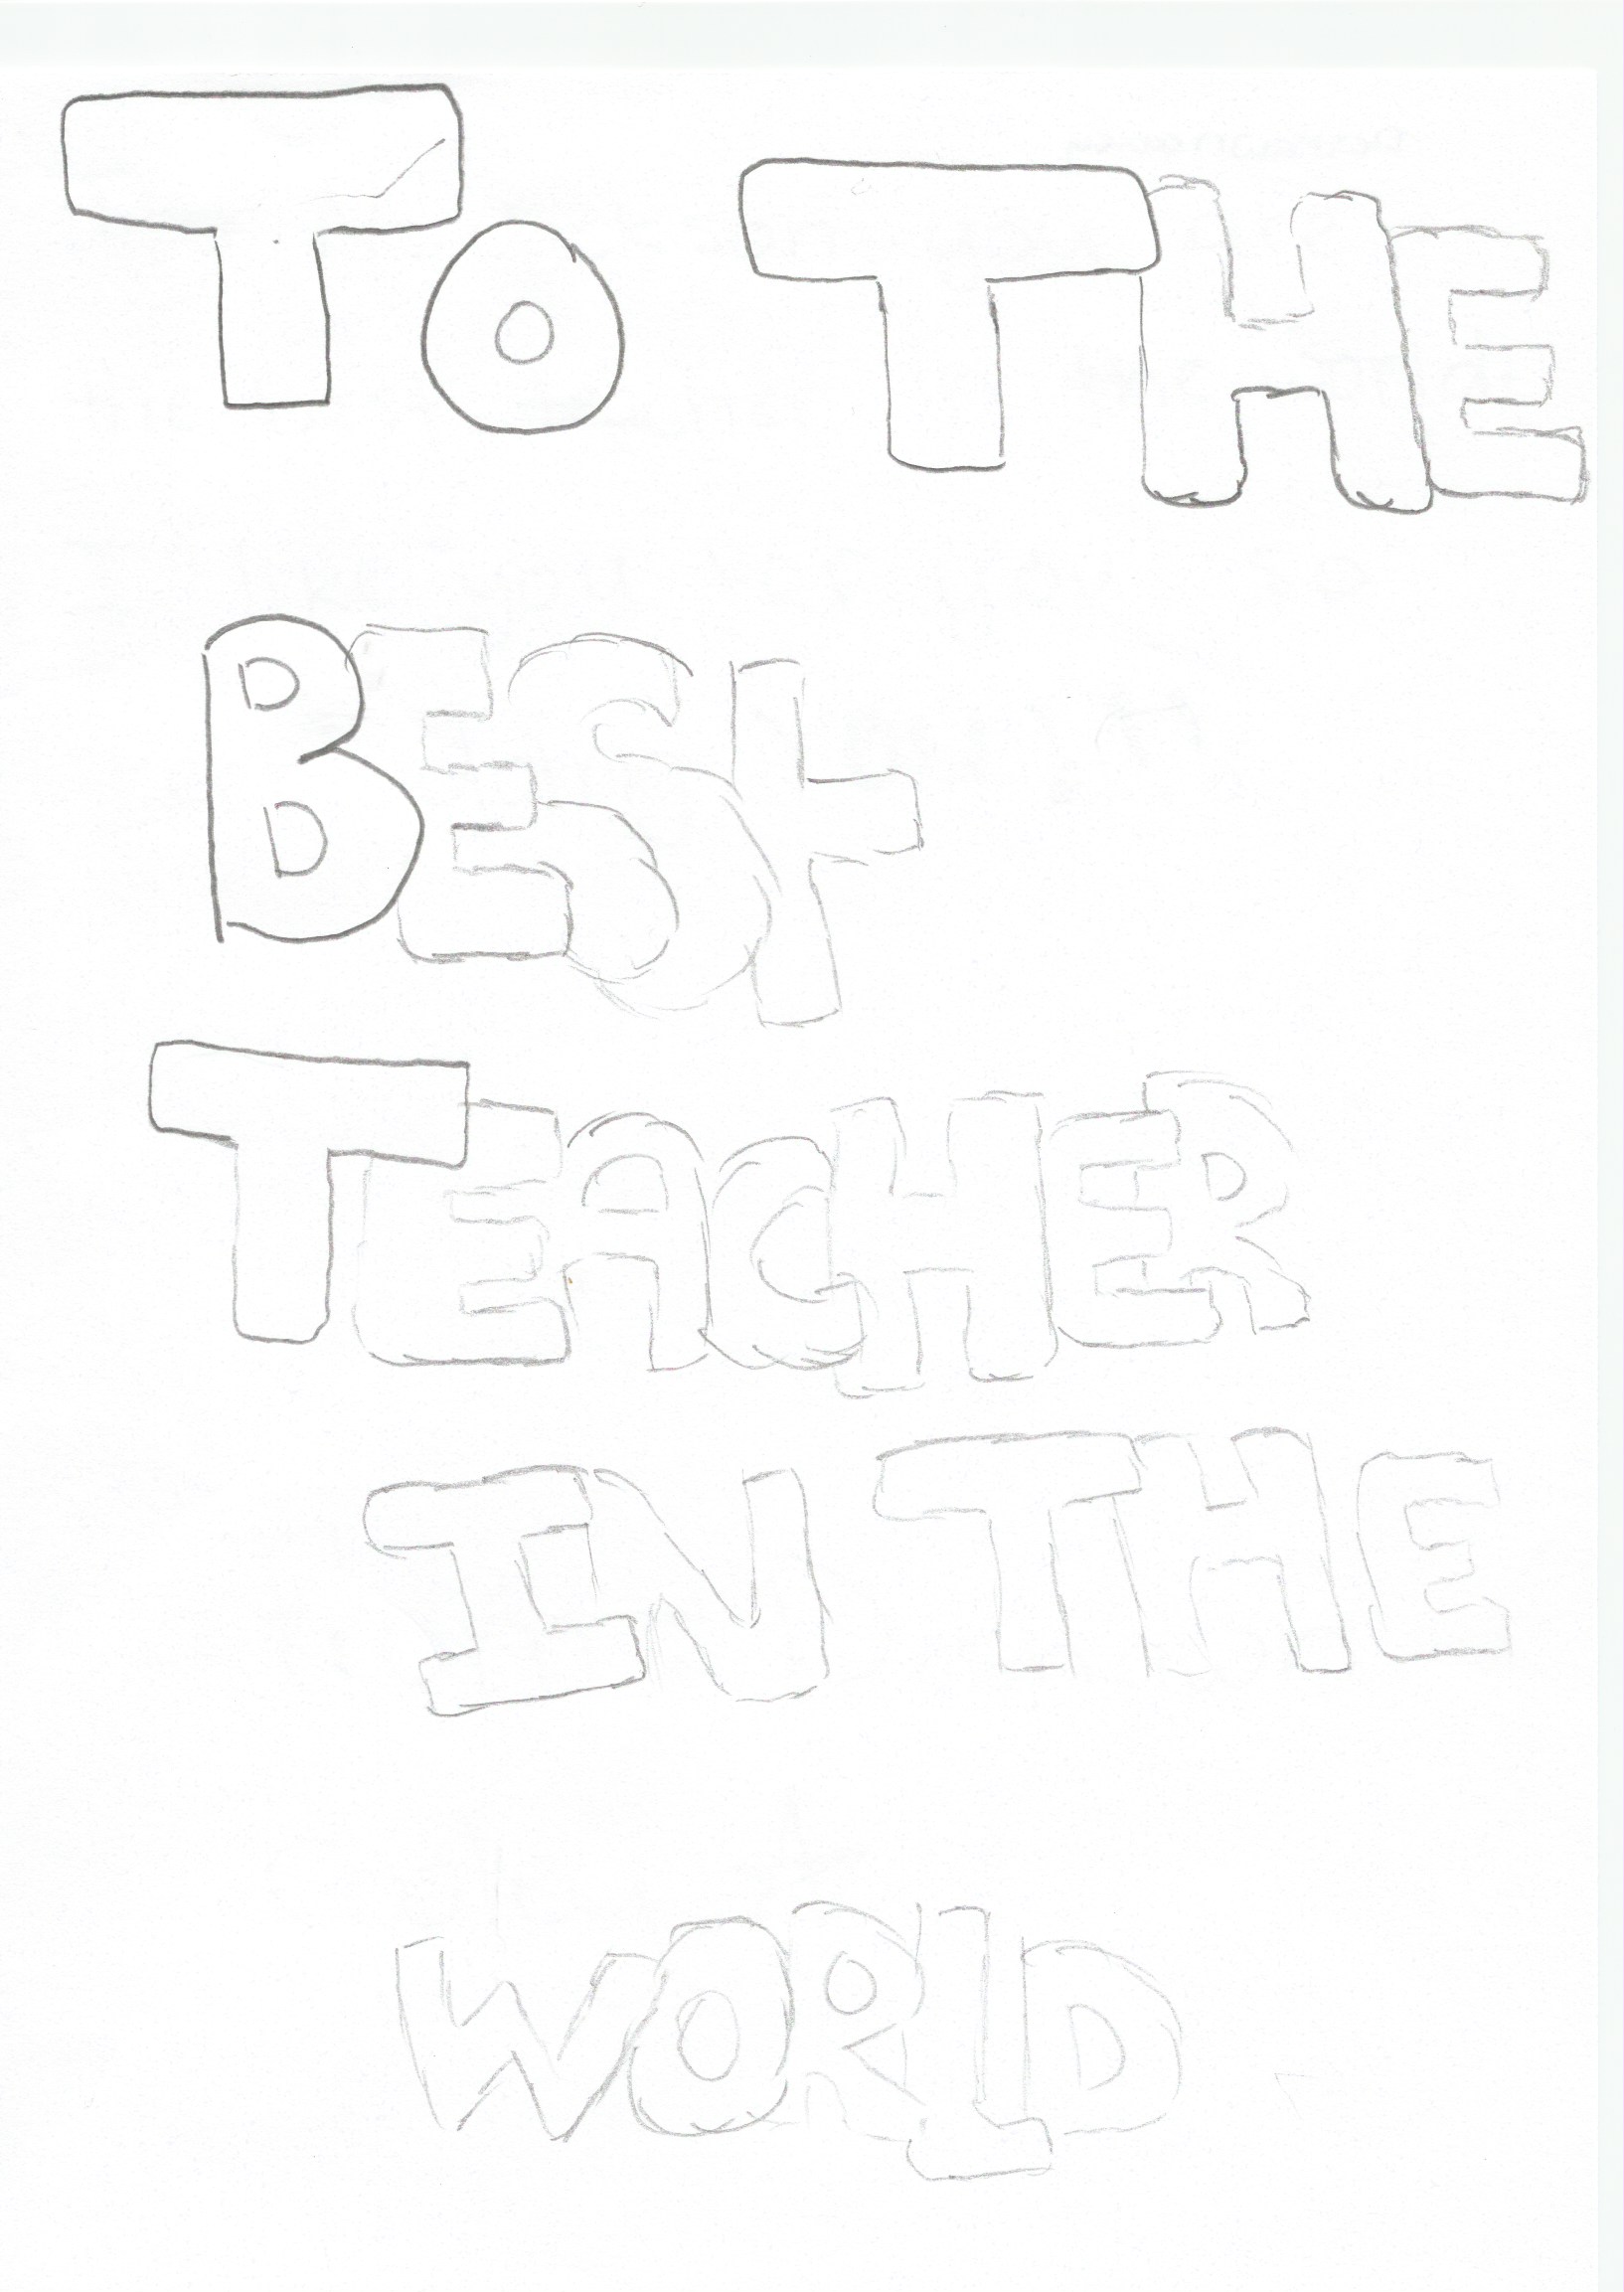 To THE
BESt
TEACHER
IN THE
WORLD